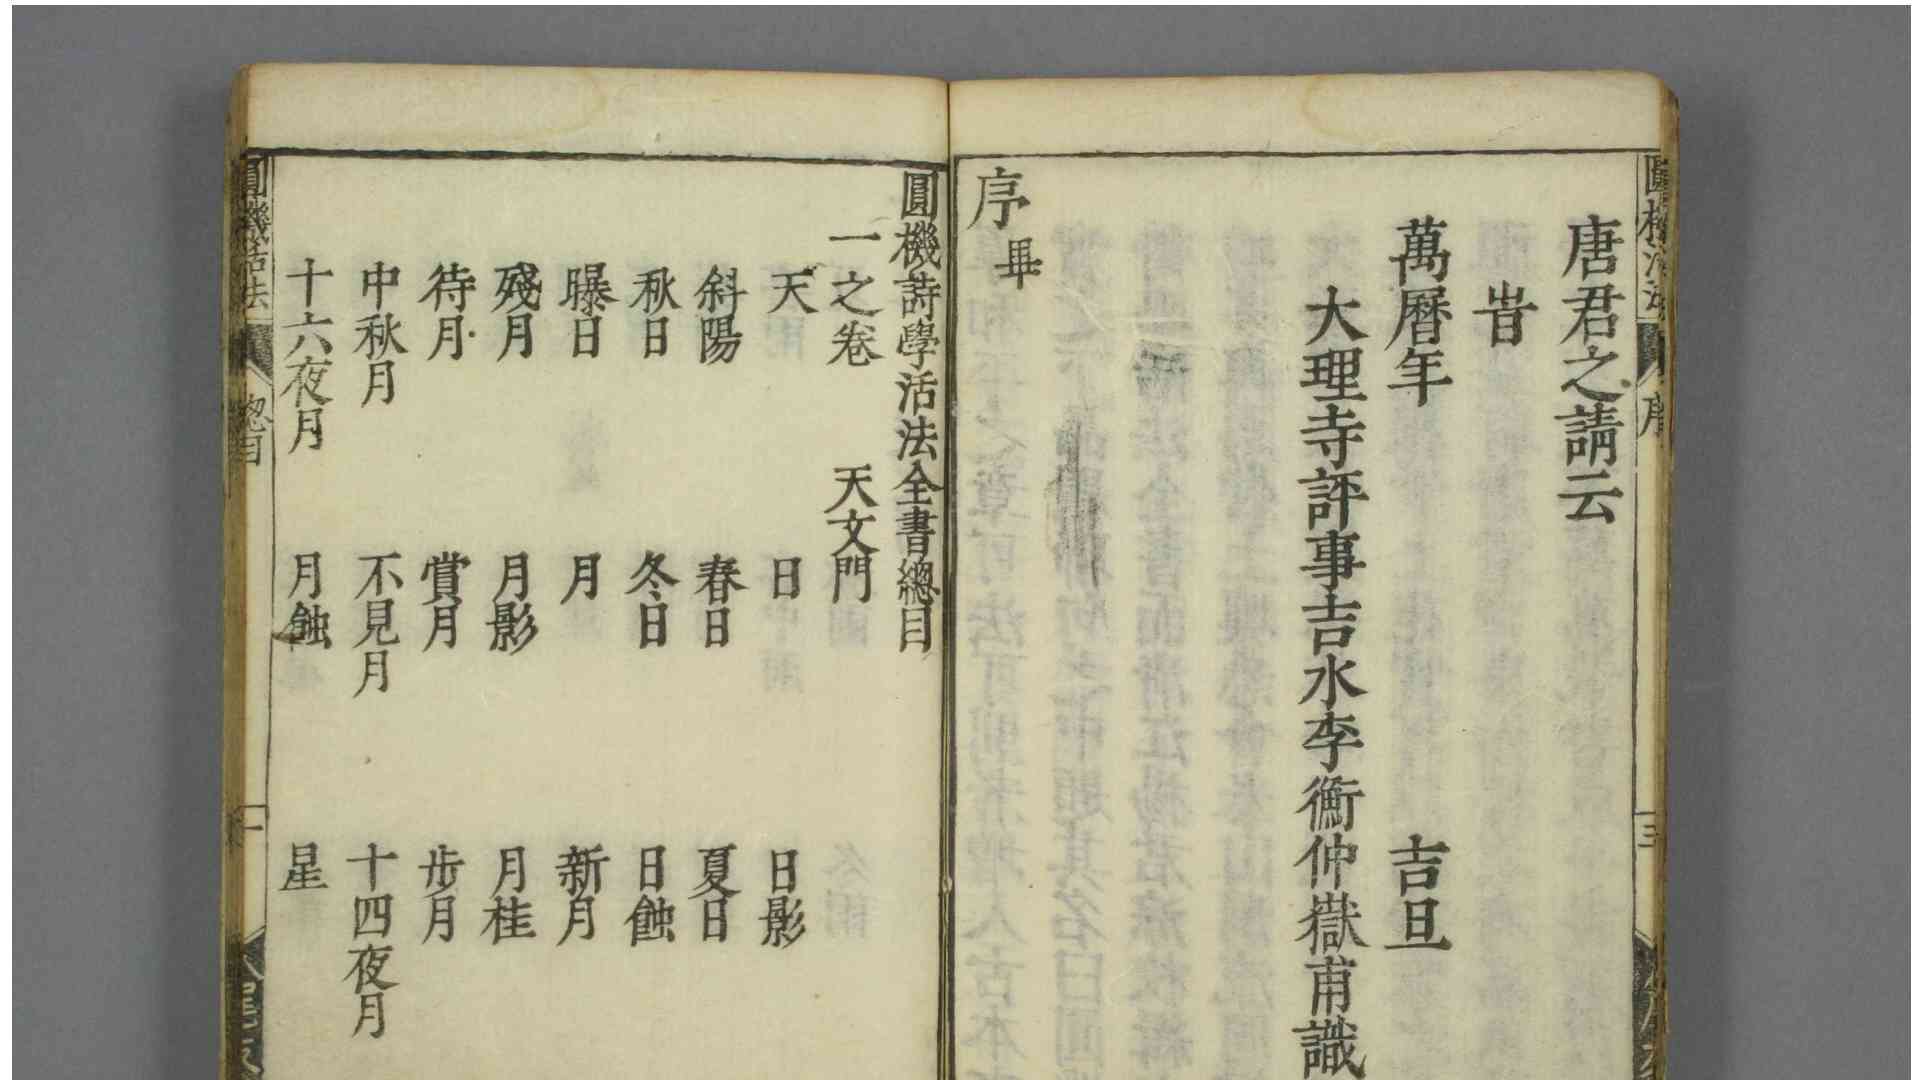 唐君之請云
旹
萬曆年 吉旦
大理寺評事吉水李衡仲嶽甫識
序畢
圓機詩學活法全書總目
一之卷 天文門
天 日 日影
斜陽 春日 夏日
秋日 冬日 日蝕
曝日 月 新月
殘月 月影 月桂
待月 賞月 步月
中秋月 不見月 十四夜月
十六夜月 月蝕 星
圓機活法 總目 一